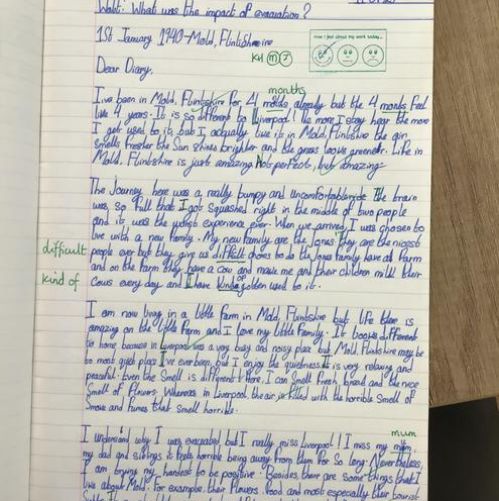 Walt: What was the impact of evacuation?
1st January 1940-Mold, Flintshire
How I feel about my work today...
KH m 7
Dear Diary,
months
I've been in Mold, Flintshire for 4 molds already but the 4 monts feel
like 4 years. It is so different to Liverpool! The more I stay hear the more
I get used to it but I actually live it in Mold, Flintshire the air
smells fresher the Sun shines brighter and the grass looks greener. Life in
Mold, Flintshire is just amazing Not perfect, but amazing.
The Journey here was a really bumpy and uncomfortable ride the train
was so full that I got squashed right in the middle of two people
and it was the worst experience ever. When we arrived I was chosen to
live with a new family. My new family are the Jones they are the nicest
difficult
people ever but they give us difficult chores to do the Jones family have a farm
and on the farm they have a cow and make me and their children milk their
kind of
cows every day and I have kinda gotten used to it.
I am now living in a little farm in Mold, Flintshire but life here is
amazing on the little farm and I love my little family. It looks different
to home because in Liverpool was a very busy and noisy place but Mold, Flintshire may be
the most quiet place I've ever been but I enjoy the quietness It is very relaxing and
peaceful. Even the smell is different here. I can smell fresh bread and the nice
smell of flowers. Whereas in Liverpool, the air is filled with the horrible smell of
smoke and fumes that smell horrible.
mum
I understand why I was evacuated but I really miss Liverpool! I miss my mum,
my dad and siblings it feels horrible being away from them for so long. Nevertheless,
I am trying my hardest to be positive. Besides, there are some things that I
like about Mold. For example, their flowers, food and most especially their